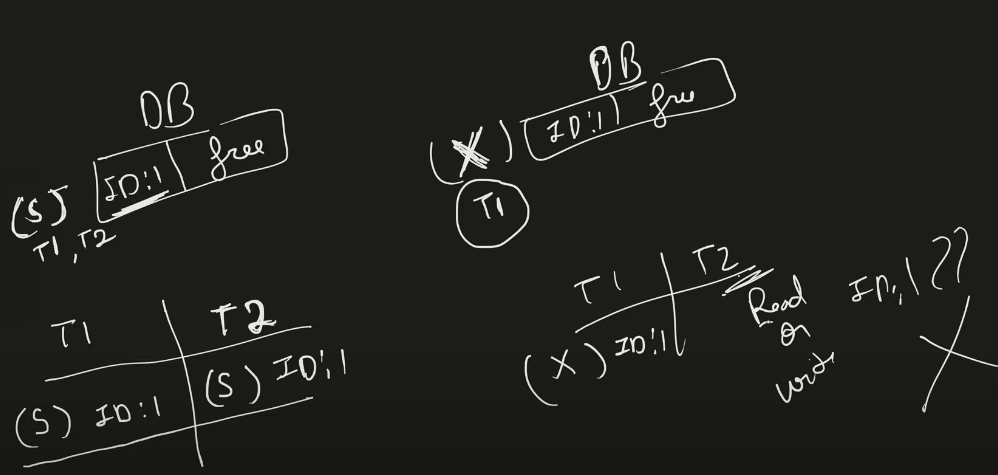 DB
ID:1 free
(S)
T1, T2
T1 T2
(S) ID:1 (S) ID:1
DB
(X) ID:1 free
T1
T1 T2
(X) ID:1
Read
or
write
ID:1 ??